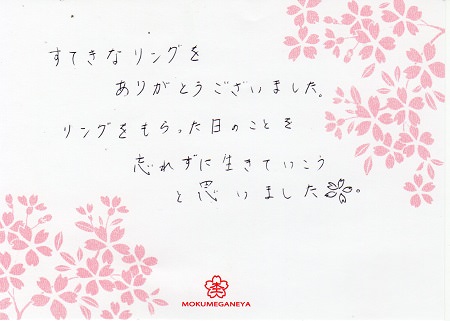 すてきなリングを
ありがとうございました。
リングをもらった日のことを
忘れずに生きていこう
と思いました。
MOKUMEGANEYA